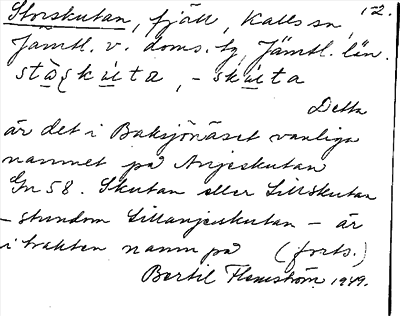 Storskutan, fjäll, Kalls sn, 1-2.
Jämtl. v. doms. tg, Jämtl. län.
stɷ̀ʂkʉta, -skʉta
Detta
är det i Baksjönäset vanliga
namnet på Anjeskutan
Gn 58. Skutan eller Lillskutan
– stundom Lillanjeskutan – är
i trakten namn på (forts.)
Bertil Flemström 1949.